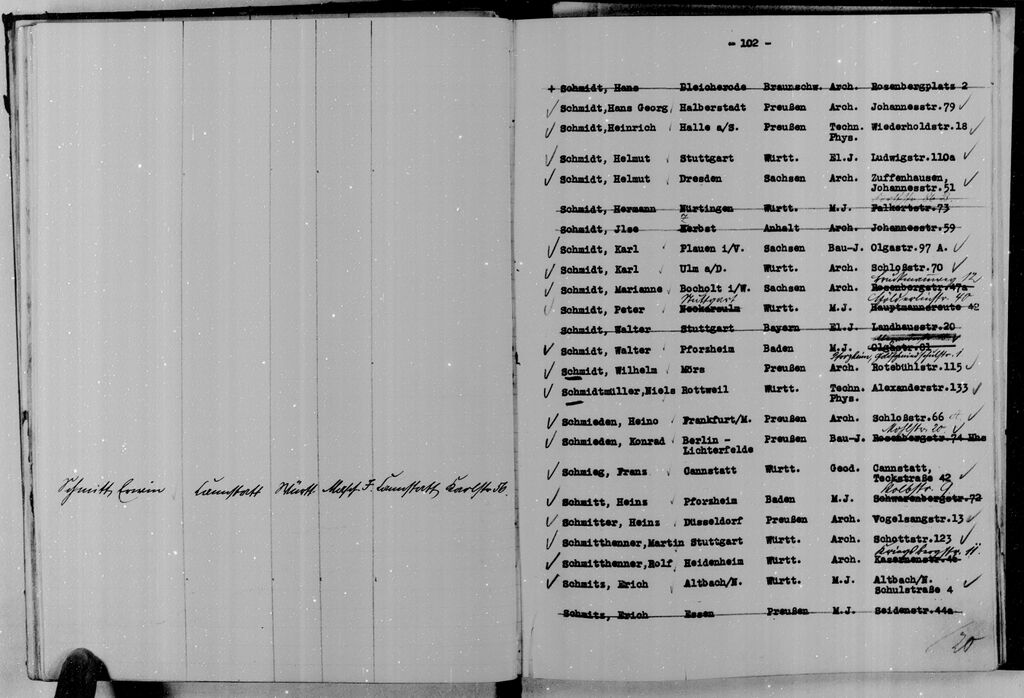 Schmitt Erwin Cannstatt Württ Masch. J. Cannstatt Karlstr. 56.
- 102 -
+ Schmidt, Hans Bleicherode Braunschw. Arch. Rosenbergplatz 2
✓ Schmidt,Hans Georg Halberstadt Preußen Arch. Johannesstr.79 ✓
✓ Schmidt,Heinrich Halle a/S. Preußen Techn. Wiederholdstr.18 ✓
Phys.
✓ Schmidt, Helmut Stuttgart Württ. El.J. Ludwigstr.110a ✓
✓ Schmidt, Helmut Dresden Sachsen Arch. Zuffenhausen, ✓
Johannesstr.51
Schmidt, Hermann Nürtingen Württ. M.J. Falkertstr.73
Schmidt, Jlse Zerbst Anhalt Arch. Johannesstr.59
✓ Schmidt, Karl Plauen i/V. Sachsen Bau-J. Olgastr.97 A. ✓
✓ Schmidt, Karl Ulm a/D. Württ. Arch. Schloßstr.70 ✓
Bruckmannweg 12
✓ Schmidt, Marianne Bocholt i/W. Sachsen Arch. Rosenbergstr.47a
Stuttgart Hölderlinstr. 40
✓ Schmidt, Peter Neckarsulm Württ. M.J. Hauptmannsreute 42
Schmidt, Walter Stuttgart Bayern El.J. Landhausstr.20
✓ Schmidt, Walter Pforzheim Baden M.J. Olgastr.81
Pforzheim, Goldschmiedschulstr. 1
✓ Schmidt, Wilhelm Mörs Preußen Arch. Rotebühlstr.115 ✓
✓ Schmidtmüller,Niels Rottweil Württ. Techn. Alexanderstr.133 ✓
Phys.
✓ Schmieden, Heino Frankfurt/M. Preußen Arch. Schloßstr.66 ✓
Mohlstr. 20 ✓
✓ Schmieden, Konrad Berlin - Preußen Bau-J. Rosenbergstr.74 Hhs
Lichterfelde
✓ Schmieg, Franz Cannstatt Württ. Geod. Cannstatt, ✓
Teckstraße 42
Kolbstr. 9
✓ Schmitt, Heinz Pforzheim Baden M.J. Schwarenbergstr.72
✓ Schmitter, Heinz Düsseldorf Preußen Arch. Vogelsangstr.13 ✓
✓ Schmitthenner,Martin Stuttgart Württ. Arch. Schottstr.123 ✓
Kriegsbergstr. 11
✓ Schmitthenner,Rolf Heidenheim Württ. Arch. Kasernenstr.46
✓ Schmitz, Erich Altbach/N. Württ. M.J. Altbach/N. ✓
Schulstraße 4
Schmitz, Erich Essen Preußen M.J. Seidenstr.44a
20